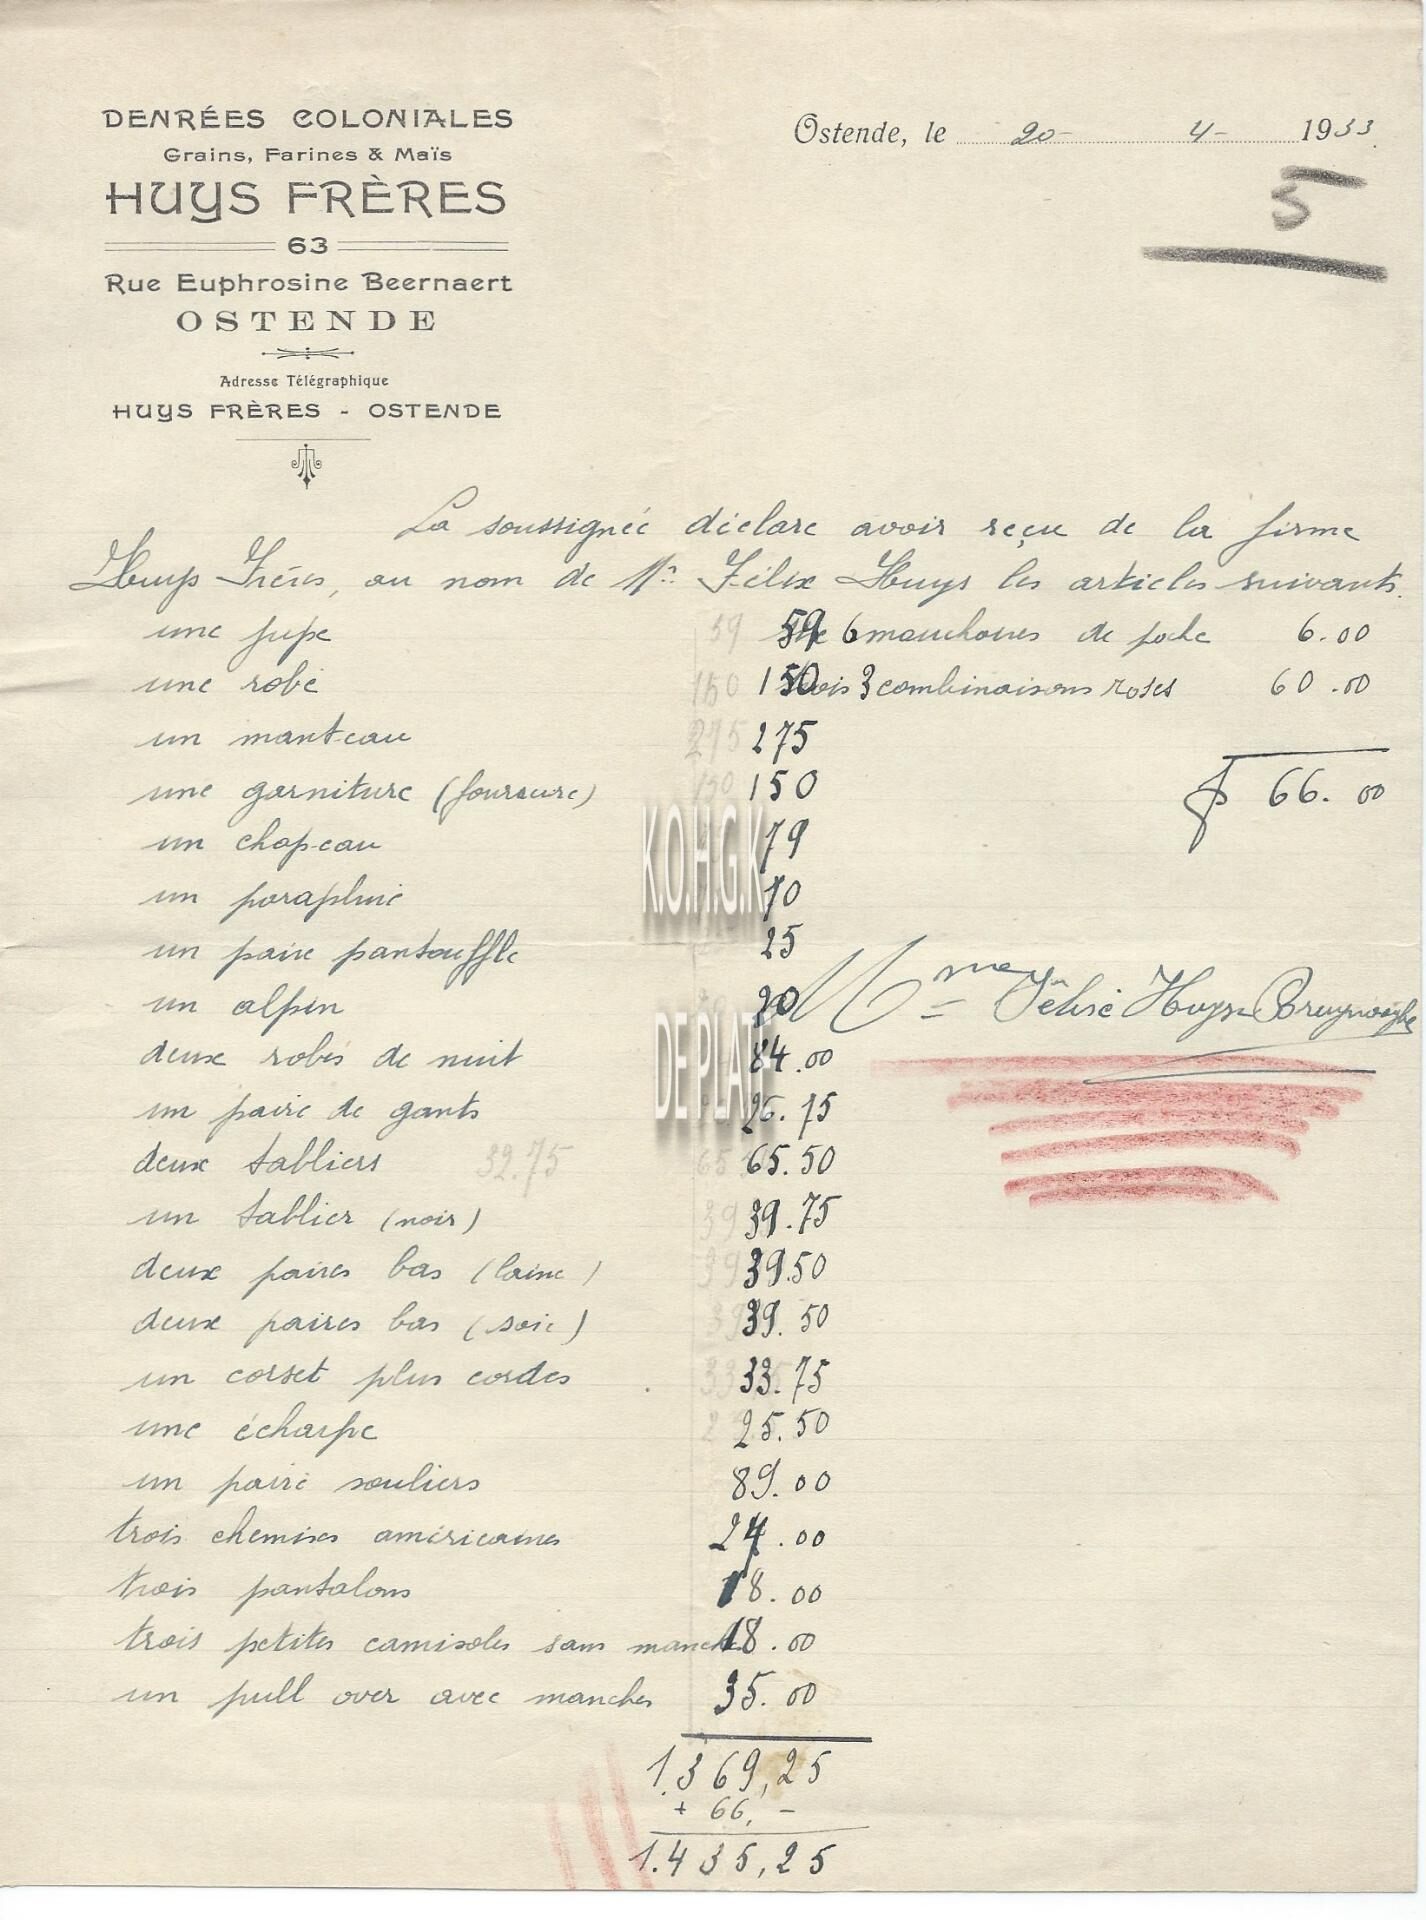 DENRÉES COLONIALES
Grains, Farines & Maïs
HUYS FRÈRES
63
Rue Euphrosine Beernaert
OSTENDE
Adresse Télégraphique
HUYS FRÈRES - OSTENDE
Ostende, le 20- 4- 1933
5
La soussignée déclare avoir reçu de la firme
Huys Frères, au nom de Mr Félix Huys les articles suivants.
une jupe 59 59 6 mouchoires de poche 6.00
une robe 150 150 trois 3 combinaisons roses 60.00
un manteau 275 275
une garniture (fourrure) 150 150 66.00
un chapeau 79
un parapluie 70
un paire pantouffle 25
un alpin 20 Mme Félix Huys-Bruynooghe
deux robes de nuit 84.00
un paire de gants 26.75
deux tabliers 32.75 65 65.50
un tablier (noir) 39 39.75
deux paires bas (laine) 39 39.50
deux paires bas (soie) 39 39.50
un corset plus cordes 33 33.75
une écharpe 25.50
un paire souliers 89.00
trois chemises américaines 24.00
trois pantalons 18.00
trois petites camisoles sans manche 18.00
un pull over avec manches 35.00
1.369,25
+ 66,-
1.435,25
K.O.H.G.K.
DE PLATE